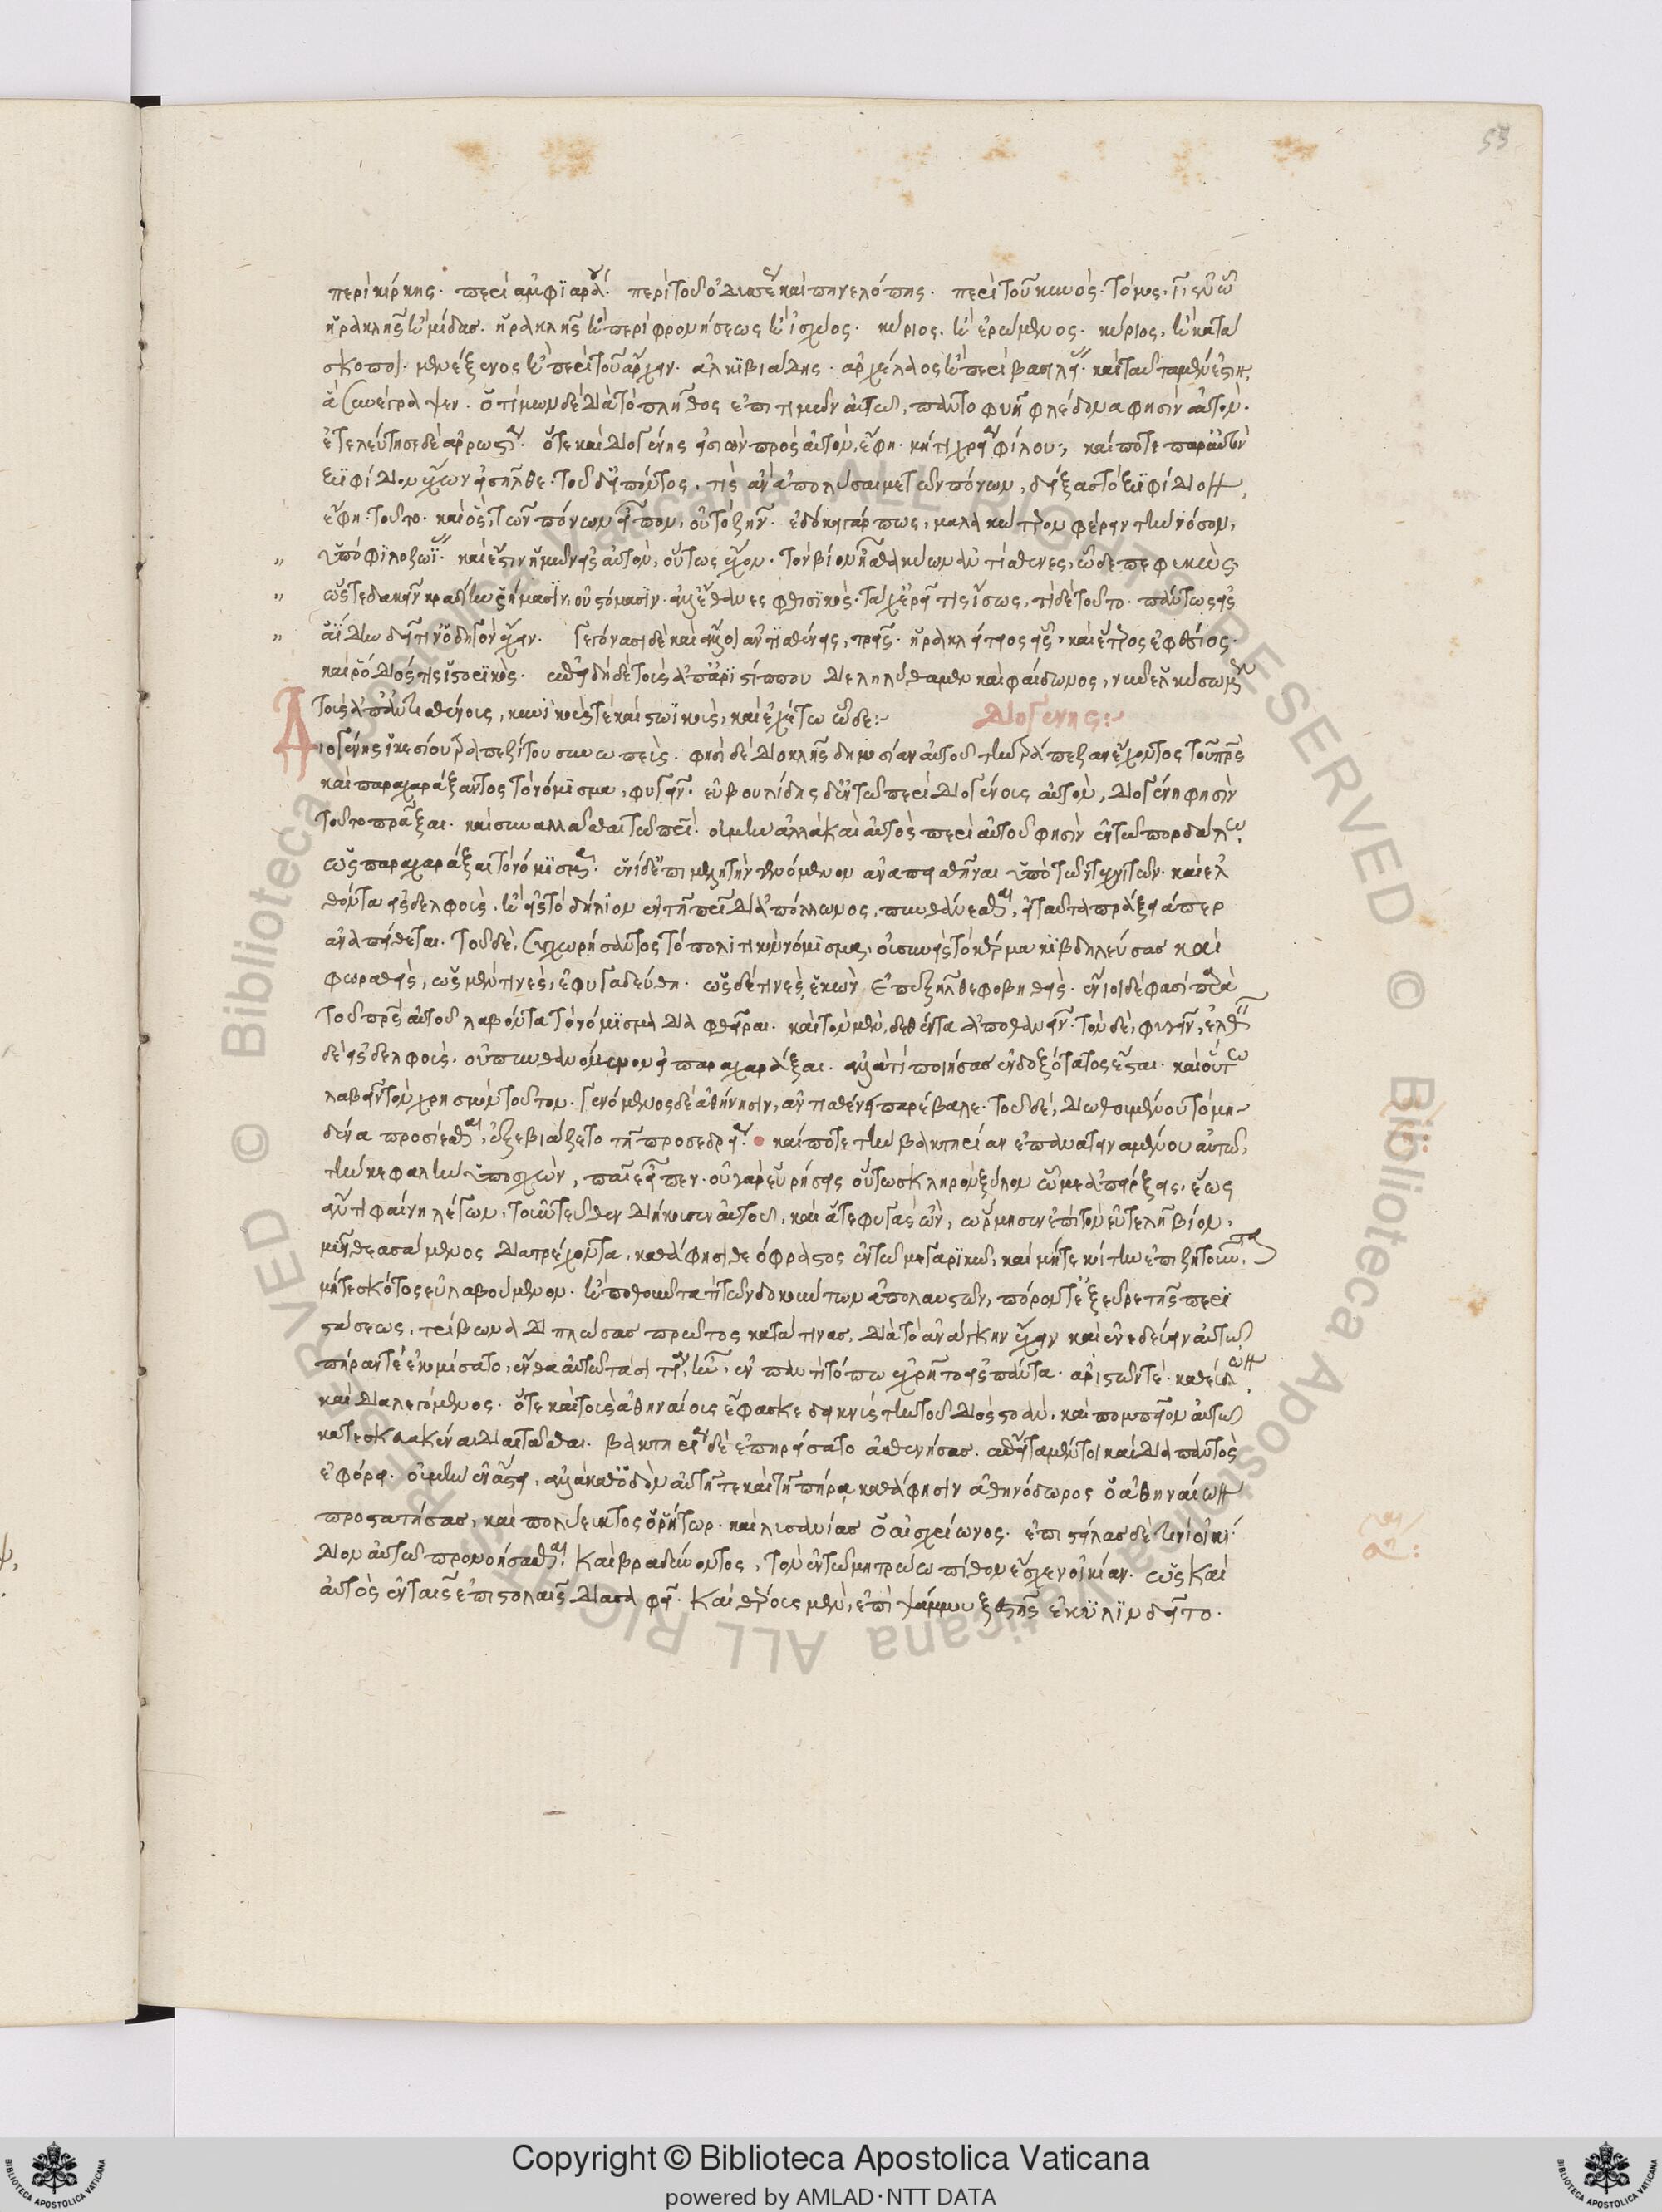 53
περὶ κίρκης. περὶ ἀμφϊαράου. περὶ τοῦ ὀδυσσέως καὶ πηνελόπης. περὶ τοῦ κυνός. τόμος. ι. ἐν ὧ
ἡρακλῆς ἢ μίδας. ἡρακλῆς ἢ περὶ φρονήσεως ἢ ἰσχύος. κύριος. ἢ ἐρώμενος. κύριος, ἢ κατά
σκοποι. μενέξενος ἢ περὶ τοῦ ἄρχειν. ἀλκϊβιάδης. ἀρχέλαος ἢ περὶ βασιλείας. καὶ ταῦτα μέν ἐστιν,
ἃ συνέγραψεν. ὁ τίμων δὲ διὰ τὸ πλῆθος ἐπιτιμῶν αὐτῶ, παντοφυῆ φλέδονα φησὶν αὐτόν.
ἐτελεύτησε δὲ ἀρρωστία. ὅτε καὶ διογένης εἰσιὼν πρὸς αὐτόν, ἔφη. μήτι χρεία φίλου; καί ποτε παρ' αὐτὸν
ξιφίδιον ἔχων εἰσῆλθε. τοῦ δ' εἰπόντος, τίς ἂν ἀπολύσαι με τῶν πόνων, δείξας τὸ ξιφίδιον,
ἔφη. τοῦτο. καὶ ὅς, τῶν πόνων εἶπον, οὐ τὸ ζῆν. ἐδόκει γάρ πως, μαλακώτερον φέρειν τὴν νόσον,
ὑπὸ φιλοζωΐας. καὶ ἔστιν ἡμῶν εἰς αὐτόν, οὕτως ἔχον. τὸν βίον ἦσθα κύων ἀντίσθενες, ὧδε πεφυκὼς,
ὥστε δακεῖν κραδίην ῥήμασϊν, οὐ στόμασϊν. ἀλλ' ἔθανες φθισϊκὸς. τάχ' ἐρεῖ τις ἴσως, τί δὲ τοῦτο. πάντως εἰς
ἀΐδην δεῖ τιν' ὁδηγὸν ἔχειν. γεγόνασι δὲ καὶ ἄλλοι ἀντισθένεις, τρεῖς. ἡρακλείτειος εἷς, καὶ ἕτερος ἐφέσιος.
καὶ ῥόδιός τις ἱστορϊκὸς. ἐπειδὴ δὲ τοὺς ἀπ' ἀριστίππου διεληλύθαμεν καὶ φαίδωνος, νῦν ἑλκύσωμεν
τοὺς ἀπ' ἀντισθένους, κυνϊκούς τε καὶ στωϊκούς, καὶ ἐχέτω ὧδε:~ Διογένης:~
Διογένης ἱκεσίου τραπεζίτου σινωπεύς. φησὶ δὲ διοκλῆς δημοσίαν αὐτοῦ τὴν τράπεζαν ἔχοντος τοῦ πατρὸς
καὶ παραχαράξαντος τὸ νόμϊσμα, φυγεῖν. εὐβουλίδης δ' ἐν τῶ περὶ διογένους αὐτόν, διογένη φησὶν
τοῦτο πρᾶξαι. καὶ συναλλᾶσθαι τῶ πατρί. οὐ μὴν ἀλλὰ καὶ αὐτὸς περὶ αὐτοῦ φησὶν ἐν τῶ πορδάλω,
ὡς παραχαράξαι τὸ νόμισμα. ἔνϊοι δ' ἐπιμελητὴν γενόμενον ἀναπεισθῆναι ὑπὸ τῶν τεχνιτῶν. καὶ ἐλ
θόντα εἰς δελφοὺς. ἢ εἰς τὸ δήλιον ἐν τῆ πατρίδι ἀπόλλωνος, πυνθάνεσθαι, εἰ ταῦτα πράξει ἅπερ
ἀναπείθεται. τοῦ δὲ, συγχωρήσαντος τὸ πολιτικὸν νόμϊσμα, οὐ συνεὶς τὸ κέρμα κϊβδηλεύσας καὶ
φωραθεὶς, ὡς μέν τινες, ἐφυγαδεύθη. ὡς δέ τινες, ἑκὼν ὑπεξῆλθε φοβηθεὶς. ἔνιοι δέ φασι παρὰ
τοῦ πατρὸς αὐτοῦ λαβόντα τὸ νόμϊσμα διαφθεῖραι. καὶ τὸν μὲν, δεθέντα ἀποθανεῖν. τὸν δὲ, φυγεῖν, ἐλθεῖν
δὲ εἰς δελφοὺς. οὐ πυνθανόμενον εἰ παραχαράξαι. ἀλλὰ τί ποιήσας ἐνδοξότατος ἔσται. καὶ οὕτω
λαβεῖν τὸν χρησμὸν τοῦτον. Γενόμενος δὲ ἀθήνησιν, ἀντισθένει παρέβαλε. τοῦ δὲ, διωθουμένου τὸ μη
δένα προσίεσθαι, ἐξεβιάζετο τῆ προσεδρεία. καί ποτε τὴν βακτηρίαν ἐπανατειναμένου αὐτῶ,
τὴν κεφαλὴν ὑποσχὼν, παῖε εἶπεν. οὐ γὰρ εὑρήσεις οὕτω σκληρὸν ξύλον ᾧ με ἀπείρξεις, ἕως
ἄν τι φαίνη λέγων. τοὐντεῦθεν διήκουσεν αὐτοῦ, καὶ ἅτε φυγὰς ὢν, ὥρμησεν ἐπὶ τὸν εὐτελῆ βίον.
μῦν θεασάμενος διατρέχοντα, καθά φησι θεόφραστος ἐν τῶ μεγαρϊκῶ, καὶ μήτε κοίτην ἐπιζητοῦντα,
μήτε σκότος εὐλαβούμενον. ἢ ποθοῦντα τῶν δοκούντων ἀπολαυστῶν, πόρον τ' ἐξεῦρε τῆς περϊ
στάσεως. τρίβωνα διπλώσας πρῶτος κατά τινας, διὰ τὸ ἀνάγκην ἔχειν καὶ ἐνεύδειν αὐτῶ
πήραν τε ἐκομίσατο, ἔνθα αὐτῶ τὰ σιτία ἦν. ἐν παντὶ τόπω ἐχρῆτο εἰς πάντα. ἀριστῶν τε. καθεύδων
καὶ διαλεγόμενος. ὅτε καὶ τοὺς ἀθηναίους ἔφασκε δεικνὺς τὴν τοῦ διὸς στοάν. καὶ πομπεῖον αὐτῶ
κατεσκευακέναι διαιτᾶσθαι. βακτηρία δὲ ἐπηρείσατο ἀσθενήσας. ἔπειτα μέντοι καὶ διὰ παντὸς
ἐφόρει. οὐ μὴν ἐν ἄστει. ἀλλὰ καθ' ὁδὸν αὐτῆ τε καὶ τῆ πήρα, καθά φησιν ἀθηνόδωρος ὁ ἀθηναίων
προστατήσας, καὶ πολύευκτος ὁ ῥήτωρ. καὶ λυσανίας ὁ αἰσχρίωνος. ἐπιστείλας δέ τινι οἰκί
διον αὐτῶ προνοήσασθαι. καὶ βραδύνοντος, τὸν ἐν τῶ μητρώω πίθον ἔσχεν οἰκίαν. ὡς καὶ
αὐτὸς ἐν ταῖς ἐπιστολαῖς διασαφεῖ. καὶ θέρους μὲν, ἐπὶ ψάμμου ζεστῆς ἐκϋλϊνδεῖτο.
Copyright © Biblioteca Apostolica Vaticana
powered by AMLAD·NTT DATA